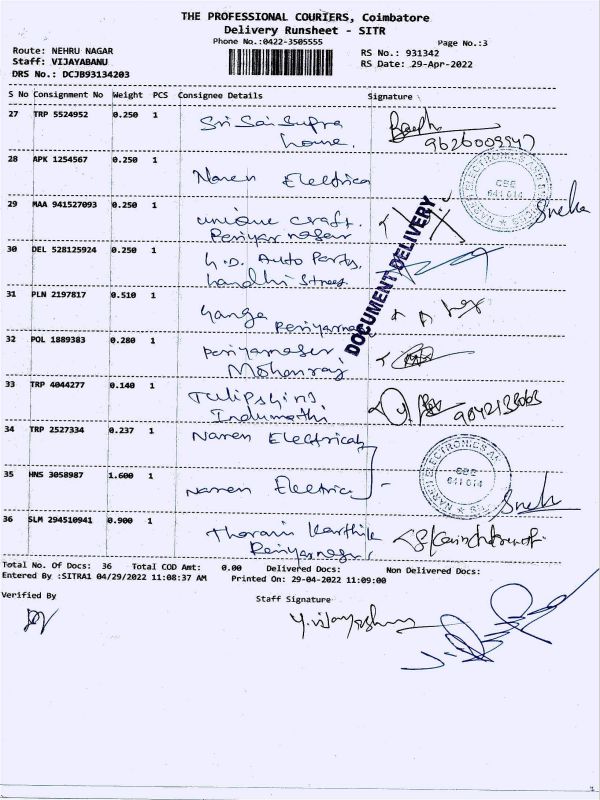 THE PROFESSIONAL COURIERS, Coimbatore
Delivery Runsheet - SITR
Phone No.:0422-3505555
Page No.:3
Route: NEHRU NAGAR
Staff: VIJAYABANU
DRS No.: DCJB93134203
RS No.: 931342
RS Date: 29-Apr-2022
S No Consignment No Weight PCS Consignee Details Signature
27 TRP 5524952 0.250 1 Sri Sai Supra
home.
9626009947
28 APK 1254567 0.250 1 Naren Electrica
CBE
641 014
Sneha
29 MAA 941527093 0.250 1 unique craft.
Periyar nagar
DOCUMENT DELIVERY
30 DEL 528125924 0.250 1 Auto Parts,
Gandhi Street
31 PLN 2197817 0.510 1 Ganga
Periyarnagar
32 POL 1889383 0.280 1 Periyarnagar
Mohanraj
33 TRP 4044277 0.140 1 Tulipshine
Indumathi
34 TRP 2527334 0.237 1 Naren Electricals
CBE
641 014
35 HNS 3058987 1.600 1 Naren Electrica
Sneh
36 SLM 294510941 0.900 1 Tharani Karthik
Periyarnagar
Total No. Of Docs: 36 Total COD Amt: 0.00 Delivered Docs: Non Delivered Docs:
Entered By :SITRA1 04/29/2022 11:08:37 AM Printed On: 29-04-2022 11:09:00
Verified By
Staff Signature